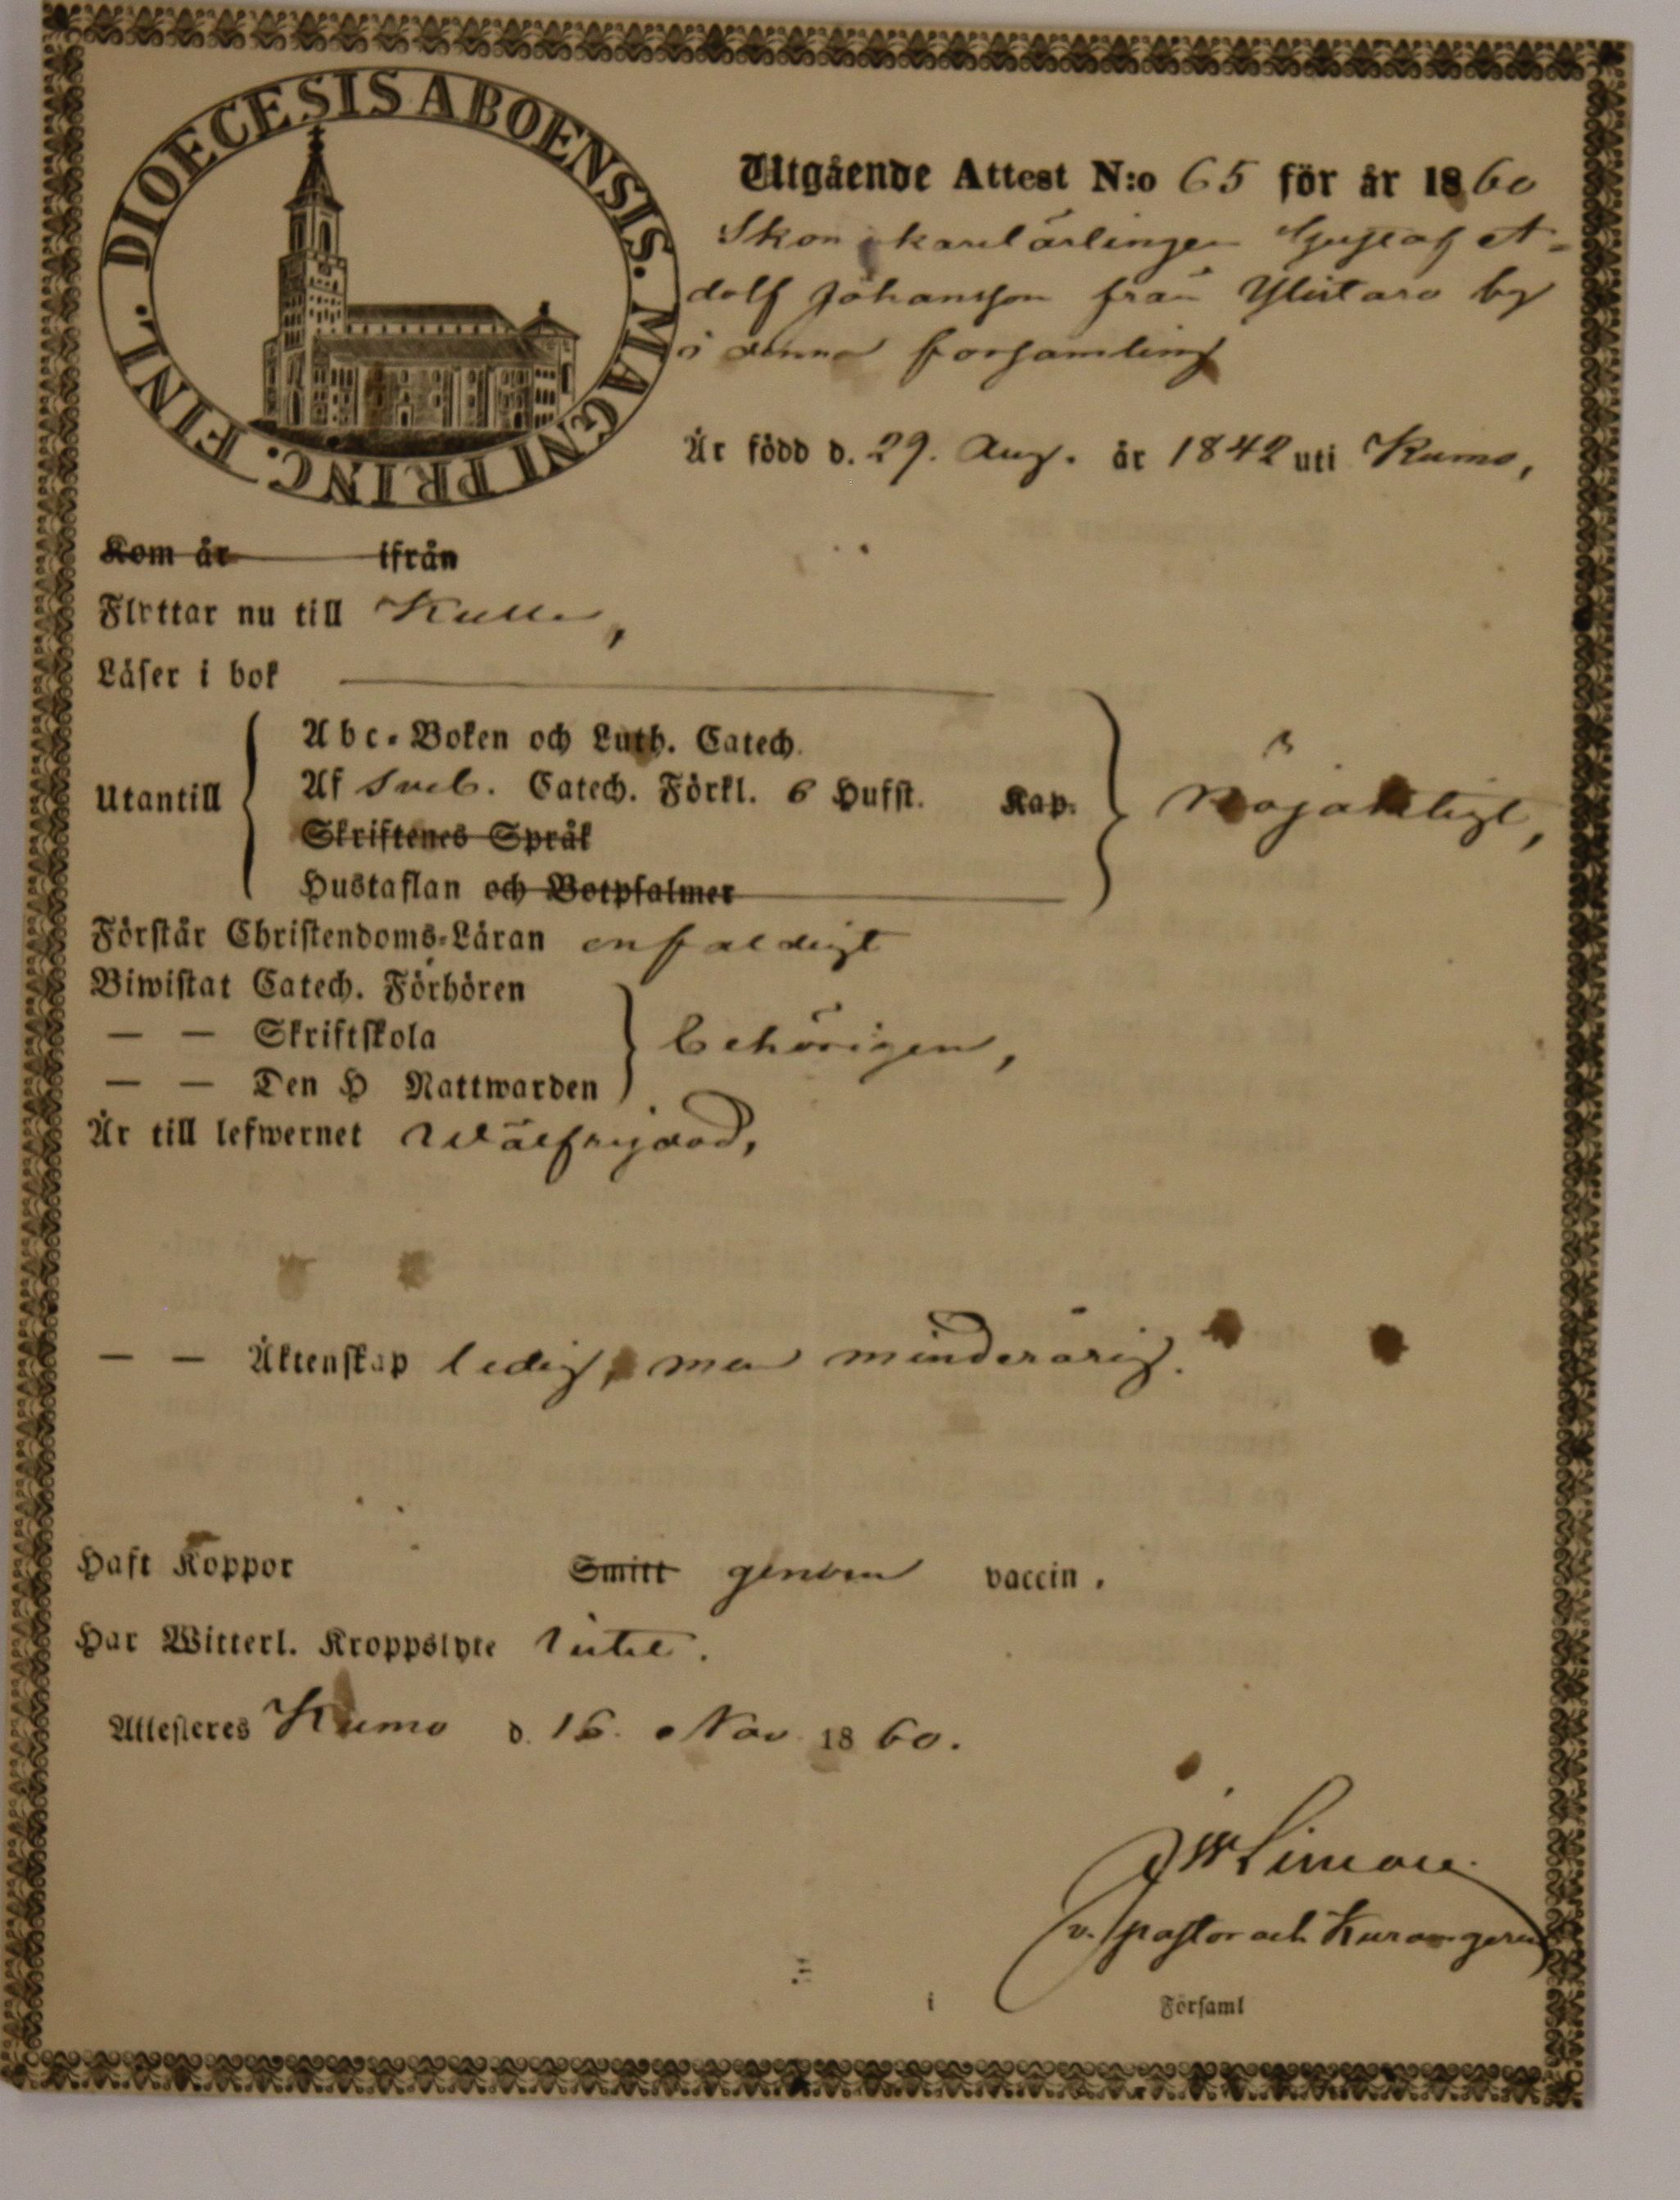 DIOECESIS ABOENSIS. MAGNI PRINC. FINL.
Utgående Attest N:o 65 för år 1860
Skomakarlärlingen Gustaf A=
dolf Johansson från Ylistaro by
i denna församling
Är född d. 29. Aug. år 1842 uti Kumo,
Kom år ifrån
Flyttar nu till Kulla,
Läser i bok
Utantill
Abc-Boken och Luth. Catech.
Af Sveb. Catech. Förkl. 6 Hufst. Kap.
Skriftenes Språk
Hustaflan och Botpsalmer
Nöjaktligt,
Förstår Christendoms-Läran enfaldigt
Biwistat Catech. Förhören
— — Skriftskola
— — Den H Nattwarden
behörigen,
Är till lefwernet Wälfrejdad,
— — Äktenskap ledig, men minderårig.
Haft Koppor Smitt genom vaccin.
Har Witterl. Kroppslyte intet.
Attesteres Kumo d. 16. Nov 1860.
v. pastor och
i Församl